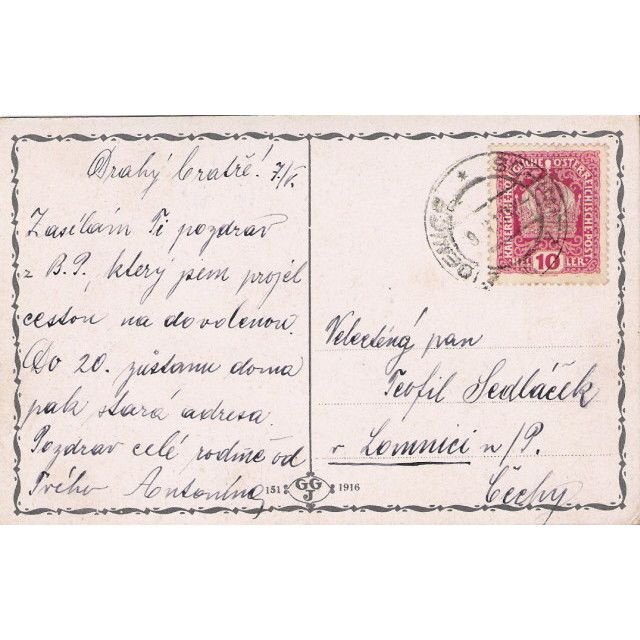 Drahý bratře! 7/V.
Zasílám Ti pozdrav
z B.P., který jsem projel
cestou na dovolenou.
Do 20. zůstanu doma
pak stará adresa.
Pozdrav celé rodině od
Tvého Antonína
151 GGJ 1916
KAISERLICHE KÖNIGLICHE ÖSTERREICHISCHE POST
10 HELLER
Velectěný pan
Teofil Sedláček
v Lomnici n/P.
Čechy